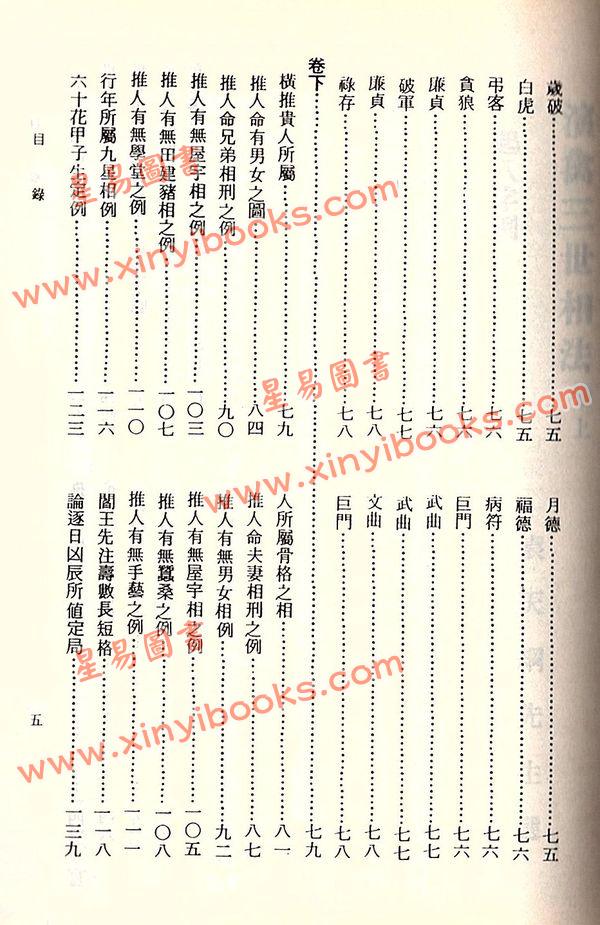 歲破……七五
月德……七五
白虎……七五
福德……七六
弔客……七六
病符……七六
貪狼……七六
巨門……七六
廉貞……七六
武曲……七七
破軍……七七
武曲……七七
廉貞……七八
文曲……七八
祿存……七八
巨門……七八
卷下……七九
橫推貴人所屬……七九
人所屬骨格之相……八一
推人命有男女之圖……八四
推人命夫妻相刑之例……八七
推人命兄弟相刑之例……九〇
推人有無男女相例……九二
推人有無屋宇相之例……一〇三
推人有無屋宇相之例……一〇五
推人有無田建豬相之例……一〇七
推人有無蠶桑之例……一〇八
推人有無學堂之例……一一〇
推人有無手藝之例……一一一
行年所屬九星相例……一一六
閻王先注壽數長短格……一一八
六十花甲子生定例……一二三
論逐日凶辰所値定局……一三九
目錄
五
星易圖書
www.xinyibooks.com
星易圖書
www.xinyibooks.com
星易圖書
www.xinyibooks.com